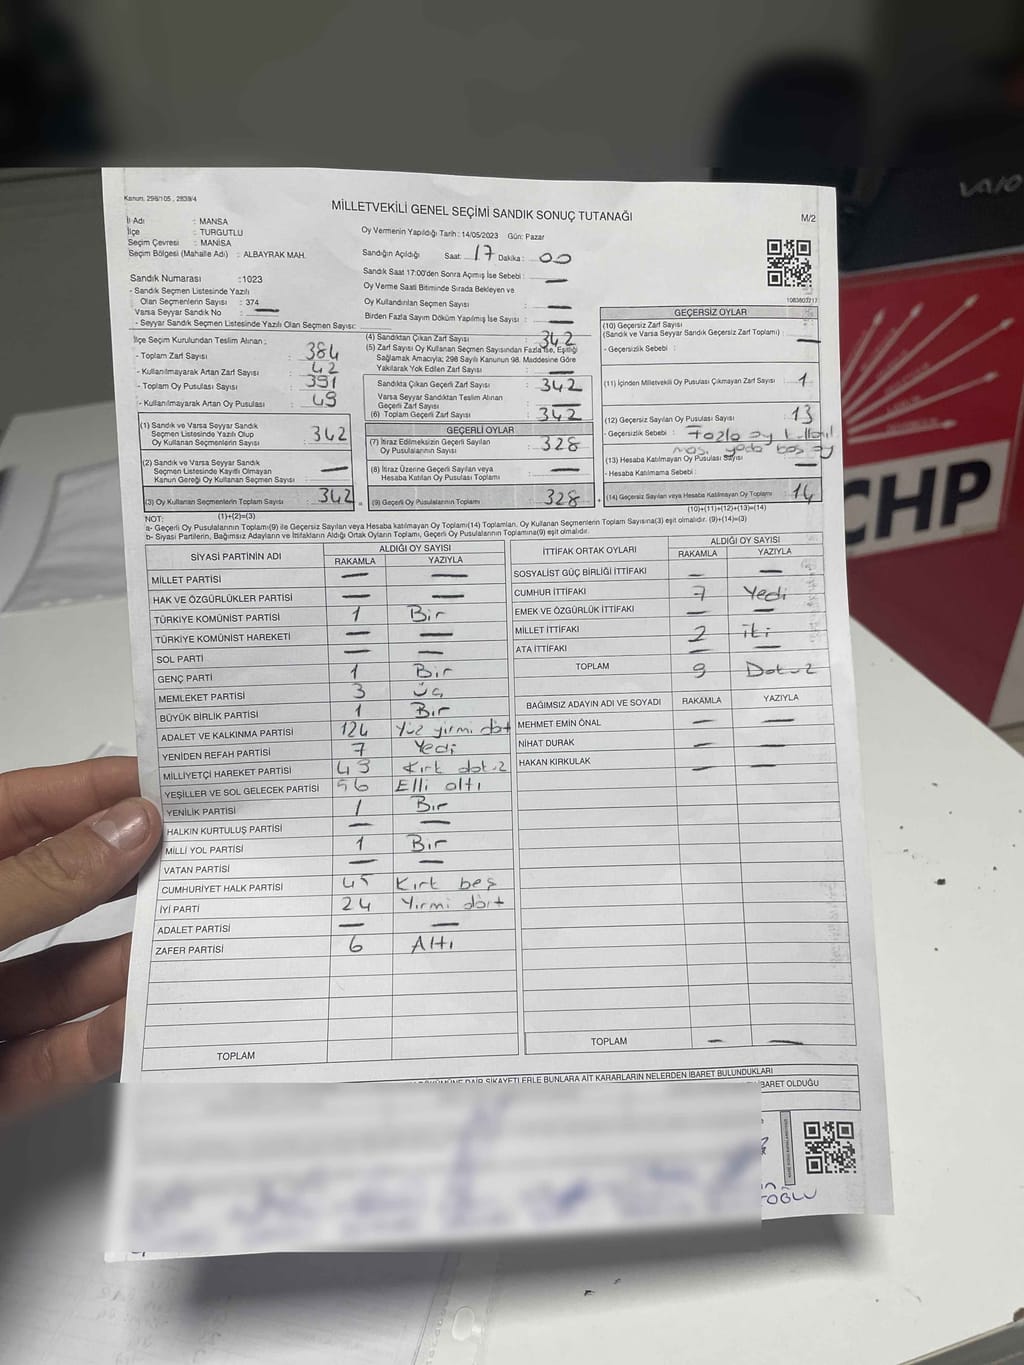 VAIO
CHP
Kanun, 298/105 , 2839/4
MİLLETVEKİLİ GENEL SEÇİMİ SANDIK SONUÇ TUTANAĞI
M/2
İl Adı : MANSA
İlçe : TURGUTLU
Seçim Çevresi : MANİSA
Seçim Bölgesi (Mahalle Adı) : ALBAYRAK MAH.
Oy Vermenin Yapıldığı Tarih : 14/05/2023 Gün: Pazar
Sandığın Açıldığı Saat: 17 Dakika : 00
Sandık Saat 17:00'den Sonra Açmış İse Sebebi : —
Oy Verme Saati Bitiminde Sırada Bekleyen ve
Oy Kullandırılan Seçmen Sayısı —
Birden Fazla Sayım Döküm Yapılmış İse Sayısı : —
Sandık Numarası : 1023
- Sandık Seçmen Listesinde Yazılı
Olan Seçmenlerin Sayısı : 374
Varsa Seyyar Sandık No —
- Seyyar Sandık Seçmen Listesinde Yazılı Olan Seçmen Sayısı:
İlçe Seçim Kurulundan Teslim Alınan ;
- Toplam Zarf Sayısı : 384
- Kullanılmayarak Artan Zarf Sayısı : 42
- Toplam Oy Pusulası Sayısı : 391
- Kullanılmayarak Artan Oy Pusulası : 49
(1) Sandık ve Varsa Seyyar Sandık
Seçmen Listesinde Yazılı Olup
Oy Kullanan Seçmenlerin Sayısı 342
(2) Sandık ve Varsa Seyyar Sandık
Seçmen Listesinde Kayıtlı Olmayan
Kanun Gereği Oy Kullanan Seçmen Sayısı —
(3) Oy Kullanan Seçmenlerin Toplam Sayısı 342
(1)+(2)=(3)
(4) Sandıktan Çıkan Zarf Sayısı : 342
(5) Zarf Sayısı Oy Kullanan Seçmen Sayısından Fazla İse, Eşitliği
Sağlamak Amacıyla; 298 Sayılı Kanunun 98. Maddesine Göre
Yakılarak Yok Edilen Zarf Sayısı —
Sandıkta Çıkan Geçerli Zarf Sayısı 342
Varsa Seyyar Sandıktan Teslim Alınan
Geçerli Zarf Sayısı —
(6) Toplam Geçerli Zarf Sayısı 342
GEÇERLİ OYLAR
(7) İtiraz Edilmeksizin Geçerli Sayılan
Oy Pusulalarının Sayısı 328
(8) İtiraz Üzerine Geçerli Sayılan veya
Hesaba Katılan Oy Pusulası Toplamı —
(9) Geçerli Oy Pusulalarının Toplamı 328
1083803217
GEÇERSİZ OYLAR
(10) Geçersiz Zarf Sayısı
(Sandık ve Varsa Seyyar Sandık Geçersiz Zarf Toplamı) : —
- Geçersizlik Sebebi :
(11) İçinden Milletvekili Oy Pusulası Çıkmayan Zarf Sayısı 1
(12) Geçersiz Sayılan Oy Pusulası Sayısı 13
- Geçersizlik Sebebi : Fazla oy kullanıl
ması yada boş oy
(13) Hesaba Katılmayan Oy Pusulası Sayısı —
- Hesaba Katılmama Sebebi :
(14) Geçersiz Sayılan veya Hesaba Katılmayan Oy Toplamı 14
(10)+(11)+(12)+(13)=(14)
NOT:
a- Geçerli Oy Pusulalarının Toplamı(9) ile Geçersiz Sayılan veya Hesaba katılmayan Oy Toplamı(14) Toplamları, Oy Kullanan Seçmenlerin Toplam Sayısına(3) eşit olmalıdır. (9)+(14)=(3)
b- Siyasi Partilerin, Bağımsız Adayların ve İttifakların Aldığı Ortak Oyların Toplamı, Geçerli Oy Pusulalarının Toplamına(9) eşit olmalıdır.
SİYASİ PARTİNİN ADI ALDIĞI OY SAYISI
RAKAMLA YAZIYLA
MİLLET PARTİSİ — —
HAK VE ÖZGÜRLÜKLER PARTİSİ — —
TÜRKİYE KOMÜNİST PARTİSİ 1 Bir
TÜRKİYE KOMÜNİST HAREKETİ — —
SOL PARTİ — —
GENÇ PARTİ 1 Bir
MEMLEKET PARTİSİ 3 Üç
BÜYÜK BİRLİK PARTİSİ 1 Bir
ADALET VE KALKINMA PARTİSİ 124 Yüz yirmi dört
YENİDEN REFAH PARTİSİ 7 Yedi
MİLLİYETÇİ HAREKET PARTİSİ 49 Kırk dokuz
YEŞİLLER VE SOL GELECEK PARTİSİ 56 Elli altı
YENİLİK PARTİSİ 1 Bir
HALKIN KURTULUŞ PARTİSİ — —
MİLLİ YOL PARTİSİ 1 Bir
VATAN PARTİSİ — —
CUMHURİYET HALK PARTİSİ 45 Kırk beş
İYİ PARTİ 24 Yirmi dört
ADALET PARTİSİ — —
ZAFER PARTİSİ 6 Altı
TOPLAM
İTTİFAK ORTAK OYLARI ALDIĞI OY SAYISI
RAKAMLA YAZIYLA
SOSYALİST GÜÇ BİRLİĞİ İTTİFAKI — —
CUMHUR İTTİFAKI 7 Yedi
EMEK VE ÖZGÜRLÜK İTTİFAKI — —
MİLLET İTTİFAKI 2 iki
ATA İTTİFAKI — —
TOPLAM 9 Dokuz
BAĞIMSIZ ADAYIN ADI VE SOYADI RAKAMLA YAZIYLA
MEHMET EMİN ÖNAL — —
NİHAT DURAK — —
HAKAN KIRKULAK — —
TOPLAM — —
DAİR ŞİKAYETLERLE BUNLARA AİT KARARLARIN NELERDEN İBARET BULUNDUKLARI
İBARET OLDUĞU
OĞLU